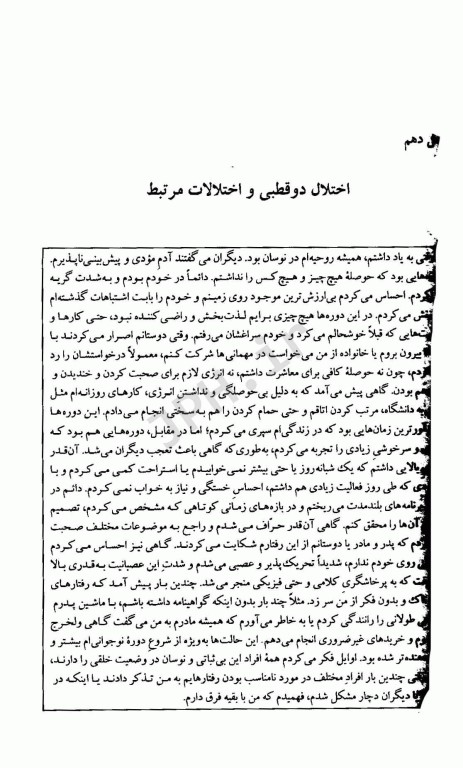 دهم
اختلال دوقطبی و اختلالات مرتبط
به یاد داشتم، همیشه روحیه‌ام در نوسان بود. دیگران می‌گفتند آدم مؤدی و پیش‌بینی‌ناپذیرم.
هایی بود که حوصلهٔ هیچ‌چیز و هیچ‌کس را نداشتم. دائماً در خودم بودم و به‌شدت گریه
احساس می‌کردم بی‌ارزش‌ترین موجود روی زمینم و خودم را بابت اشتباهات گذشته‌ام
می‌کردم. در این دوره‌ها هیچ‌چیزی برایم لذت‌بخش و راضی‌کننده نبود، حتی کارها و
هایی که قبلاً خوشحالم می‌کرد و خودم سراغشان می‌رفتم. وقتی دوستانم اصرار می‌کردند با
بیرون بروم یا خانواده از من می‌خواست در مهمانی‌ها شرکت کنم، معمولاً درخواستشان را رد
چون نه حوصلهٔ کافی برای معاشرت داشتم، نه انرژی لازم برای صحبت کردن و خندیدن و
بودن. گاهی پیش می‌آمد که به دلیل بی‌حوصلگی و نداشتن انرژی، کارهای روزانه‌ام مثل
دانشگاه، مرتب کردن اتاقم و حتی حمام کردن را هم به سختی انجام می‌دادم. این دوره‌ها
زمان‌هایی بود که در زندگی‌ام سپری می‌کردم؛ اما در مقابل، دوره‌هایی هم بود که
و سرخوشی زیادی را تجربه می‌کردم، به‌طوری‌که گاهی باعث تعجب دیگران می‌شد. آن‌قدر
بالایی داشتم که یک شبانه‌روز یا حتی بیشتر نمی‌خوابیدم یا استراحت کمی می‌کردم و با
که طی روز فعالیت زیادی هم داشتم، احساس خستگی و نیاز به خواب نمی‌کردم. دائم در
برنامه‌های بلندمدت می‌ریختم و در بازه‌های زمانی کوتاهی که مشخص می‌کردم، تصمیم
آن‌ها را محقق کنم. گاهی آن‌قدر حرّاف می‌شدم و راجع به موضوعات مختلف صحبت
که پدر و مادر یا دوستانم از این رفتارم شکایت می‌کردند. گاهی نیز احساس می‌کردم
روی خودم ندارم، شدیداً تحریک‌پذیر و عصبی می‌شدم و شدت این عصبانیت به‌قدری بالا
که به پرخاشگری کلامی و حتی فیزیکی منجر می‌شد. چندین بار پیش آمد که رفتارهای
و بدون فکر از من سر زد. مثلاً چند بار بدون اینکه گواهینامه داشته باشم، با ماشین پدرم
طولانی را رانندگی کردم یا به خاطر می‌آورم که همیشه مادرم به من می‌گفت گاهی ولخرج
و خریدهای غیرضروری انجام می‌دهم. این حالت‌ها به‌ویژه از شروع دورهٔ نوجوانی‌ام بیشتر و
شده بود. اوایل فکر می‌کردم همهٔ افراد این بی‌ثباتی و نوسان در وضعیت خلقی را دارند،
چندین بار افراد مختلف در مورد نامناسب بودن رفتارهایم به من تذکر دادند یا اینکه در
دیگران دچار مشکل شدم، فهمیدم که من با بقیه فرق دارم.